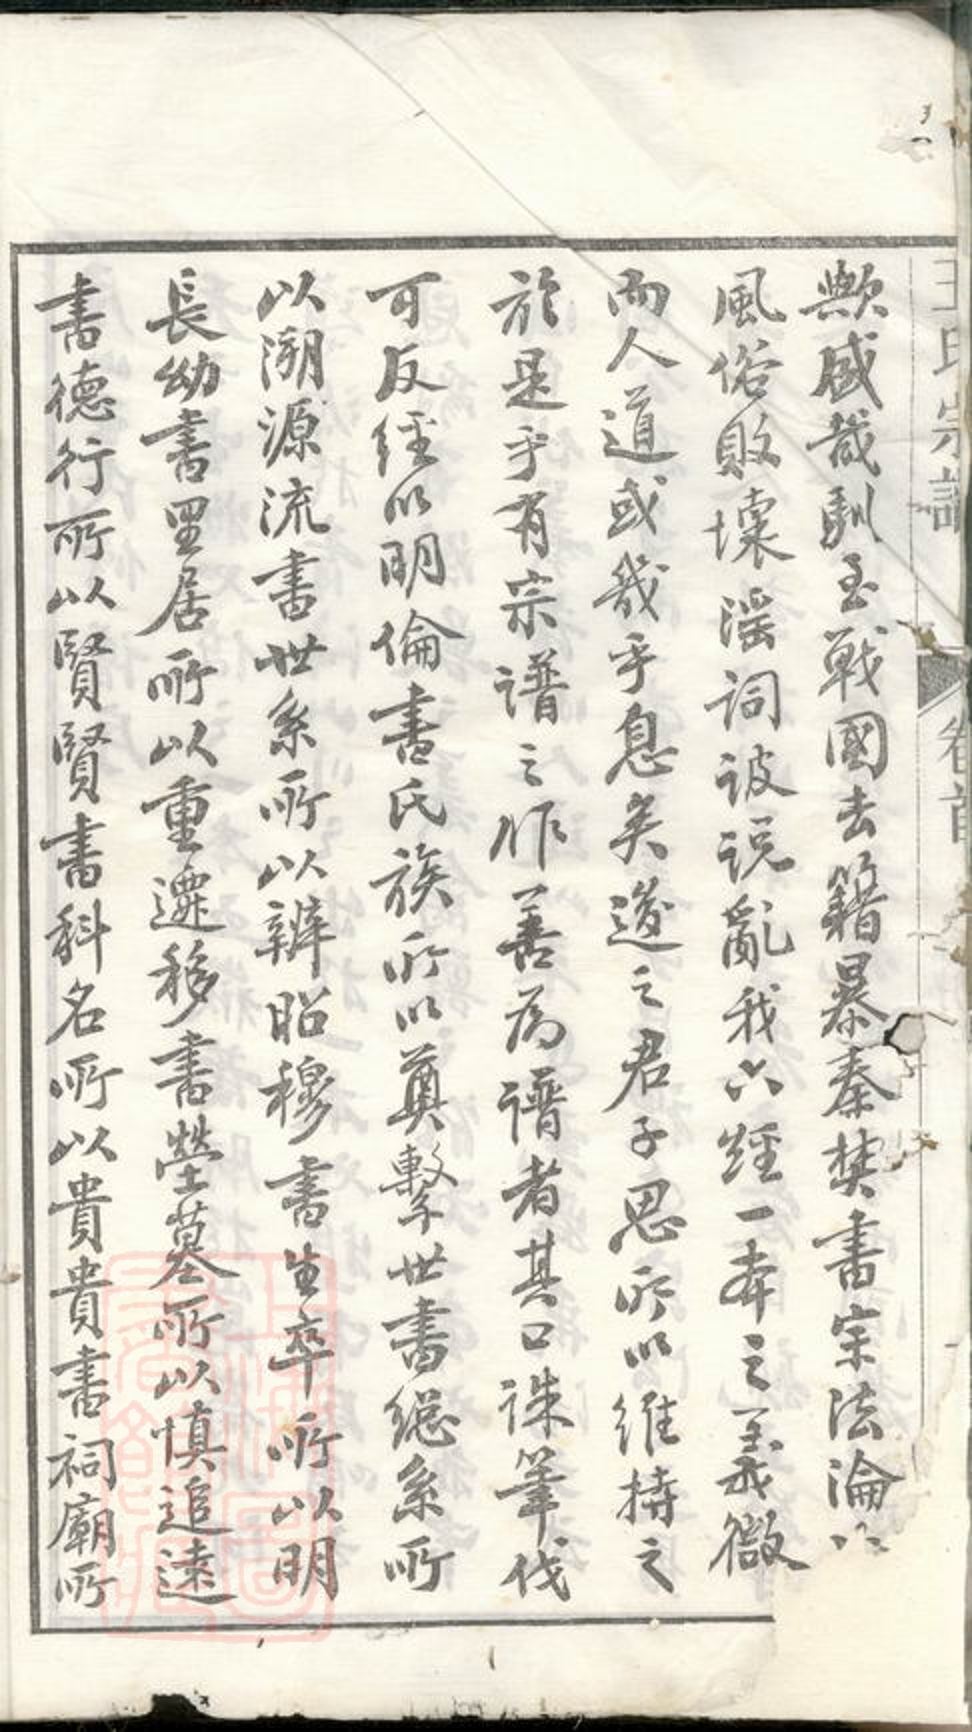 王氏宗譜
卷首
歟盛哉馴至戰國去籍暴秦焚書宗法淪
風俗敗壞滛詞詖說亂我六經一夲之義微
而人道或幾乎息矣遂之君子思所以維持之
於是乎有宗譜之作善為譜者其口誅筆伐
可反經以明倫書氏族所以奠繫世書總系所
以溯源流書世系所以辨昭穆書生卒所以明
長幼書里居所以重遷移書塋墓所以慎追遠
書德行所以賢賢書科名所以貴貴書祠廟所